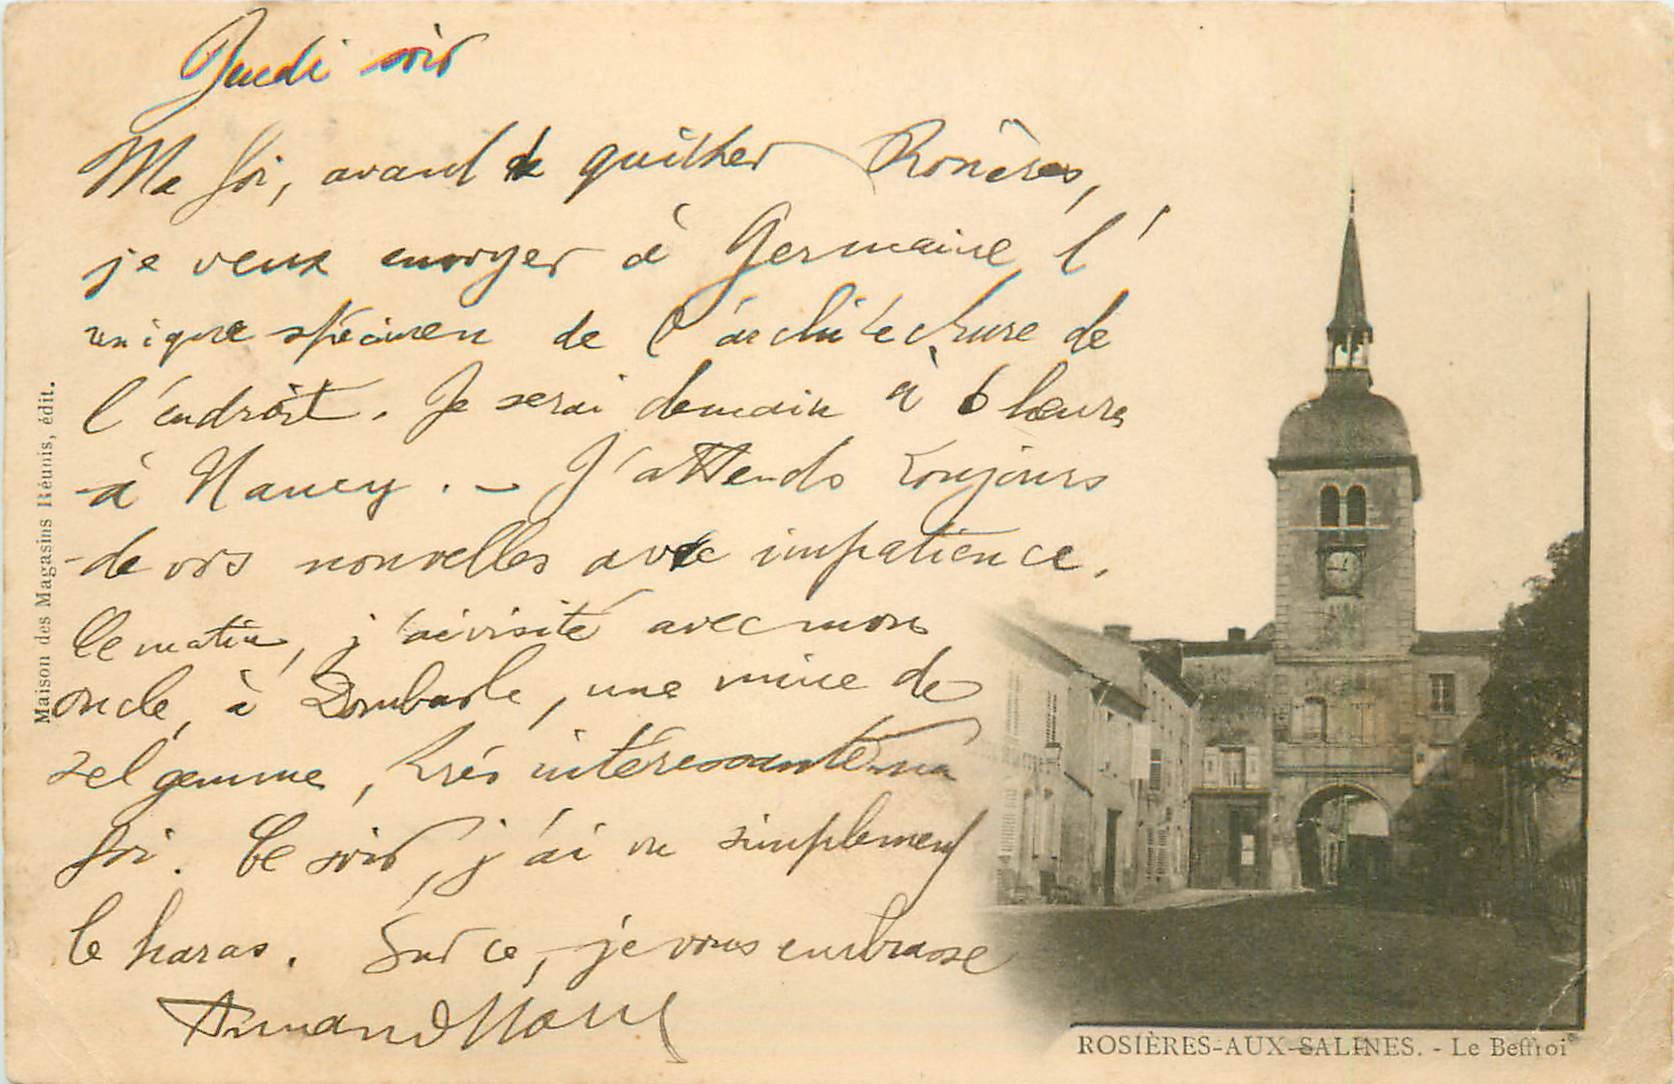 Jeudi soir
Ma foi, avant de quitter Rosières,
je veux envoyer à Germaine l'
unique spécimen de l'architecture de
l'endroit. Je serai demain à 6 heures
à Nancy. - J'attends toujours
de vos nouvelles avec impatience.
Ce matin, j'ai visité avec mon
oncle, à Dombasle, une mine de
sel gemme, très intéressante ma
foi. Ce soir, j'ai vu simplement
le haras. Sur ce, je vous embrasse
Armand
Maison des Magasins Réunis, édit.
ROSIÈRES-AUX-SALINES. - Le Beffroi